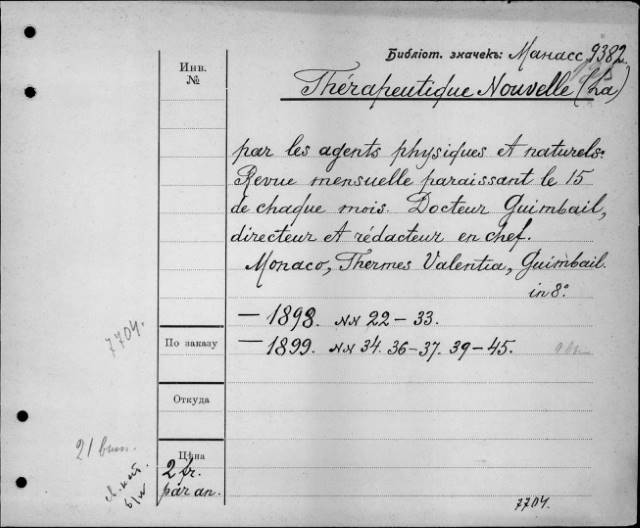 Библіот. значекъ: Манасс. 9382.
Инв.
№
Thérapeutique Nouvelle (La)
par les agents physiques et naturels.
Revue mensuelle paraissant le 15
de chaque mois. Docteur Guimbail,
directeur et rédacteur en chef.
Monaco, Thermes Valentia, Guimbail.
in 8°.
— 1898. NN 22 – 33.
7704.
По заказу
— 1899. NN 34. 36–37. 39–45.
Откуда
21
Цѣна
2 fr.
par an.
б/н
7704.